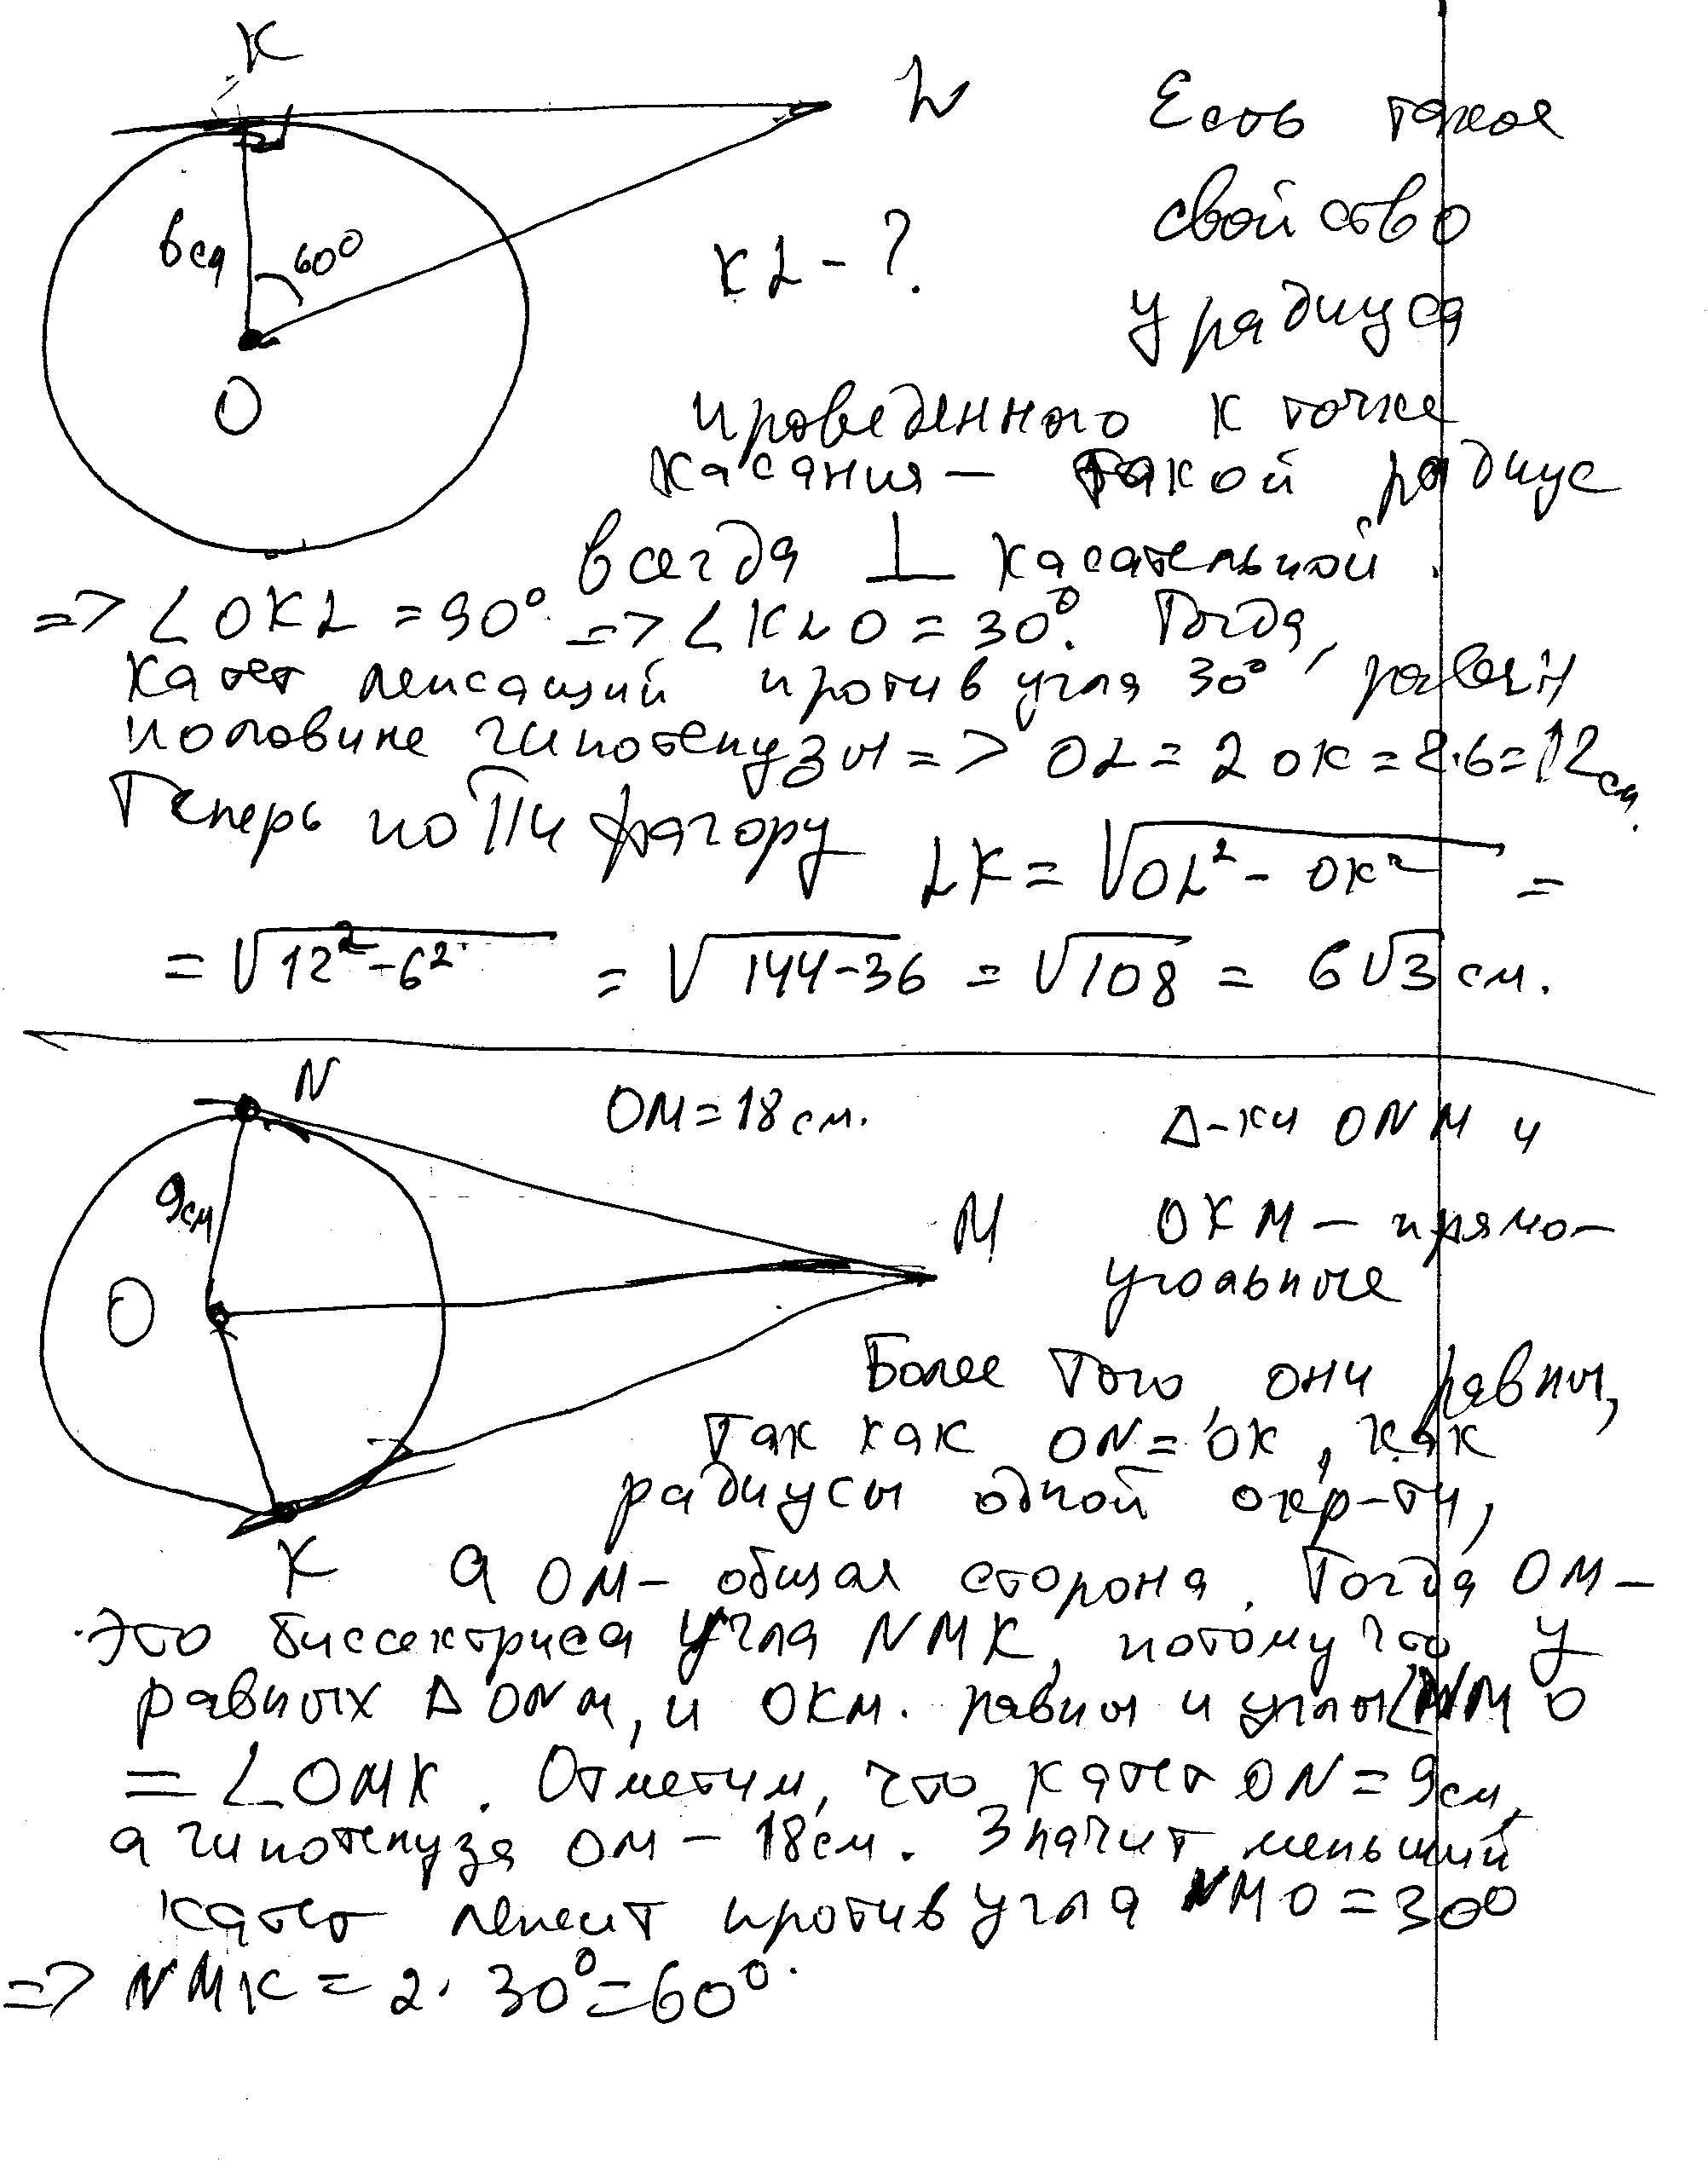 K
L
Есть такое
6 см
60°
KL - ?
свойство
у радиуса
O
проведенного к точке
касания — такой радиус
всегда ⊥ касательной.
=> ∠OKL = 90° => ∠KLO = 30°. Тогда,
катет лежащий против угла 30°, равен
половине гипотенузы => OL = 2 OK = 2·6 = 12 см.
Теперь по Пифагору LK = √OL² - OK² =
= √12² - 6² = √144-36 = √108 = 6√3 см.
N
OM = 18 см.
Δ-ки ONM и
9 см
M
OKM — прямо-
угольные
O
Более того, они равны,
так как ON = OK, как
радиусы одной окр-ти,
K
а OM - общая сторона. Тогда OM —
это биссектриса угла NMK, потому что у
равных Δ ONM, и OKM. равны и углы ∠NMO
= ∠OMK. Отметим, что катет ON = 9 см,
а гипотенуза OM — 18 см. Значит меньший
катет лежит против угла NMO = 30°
=> NMK = 2· 30° = 60°.